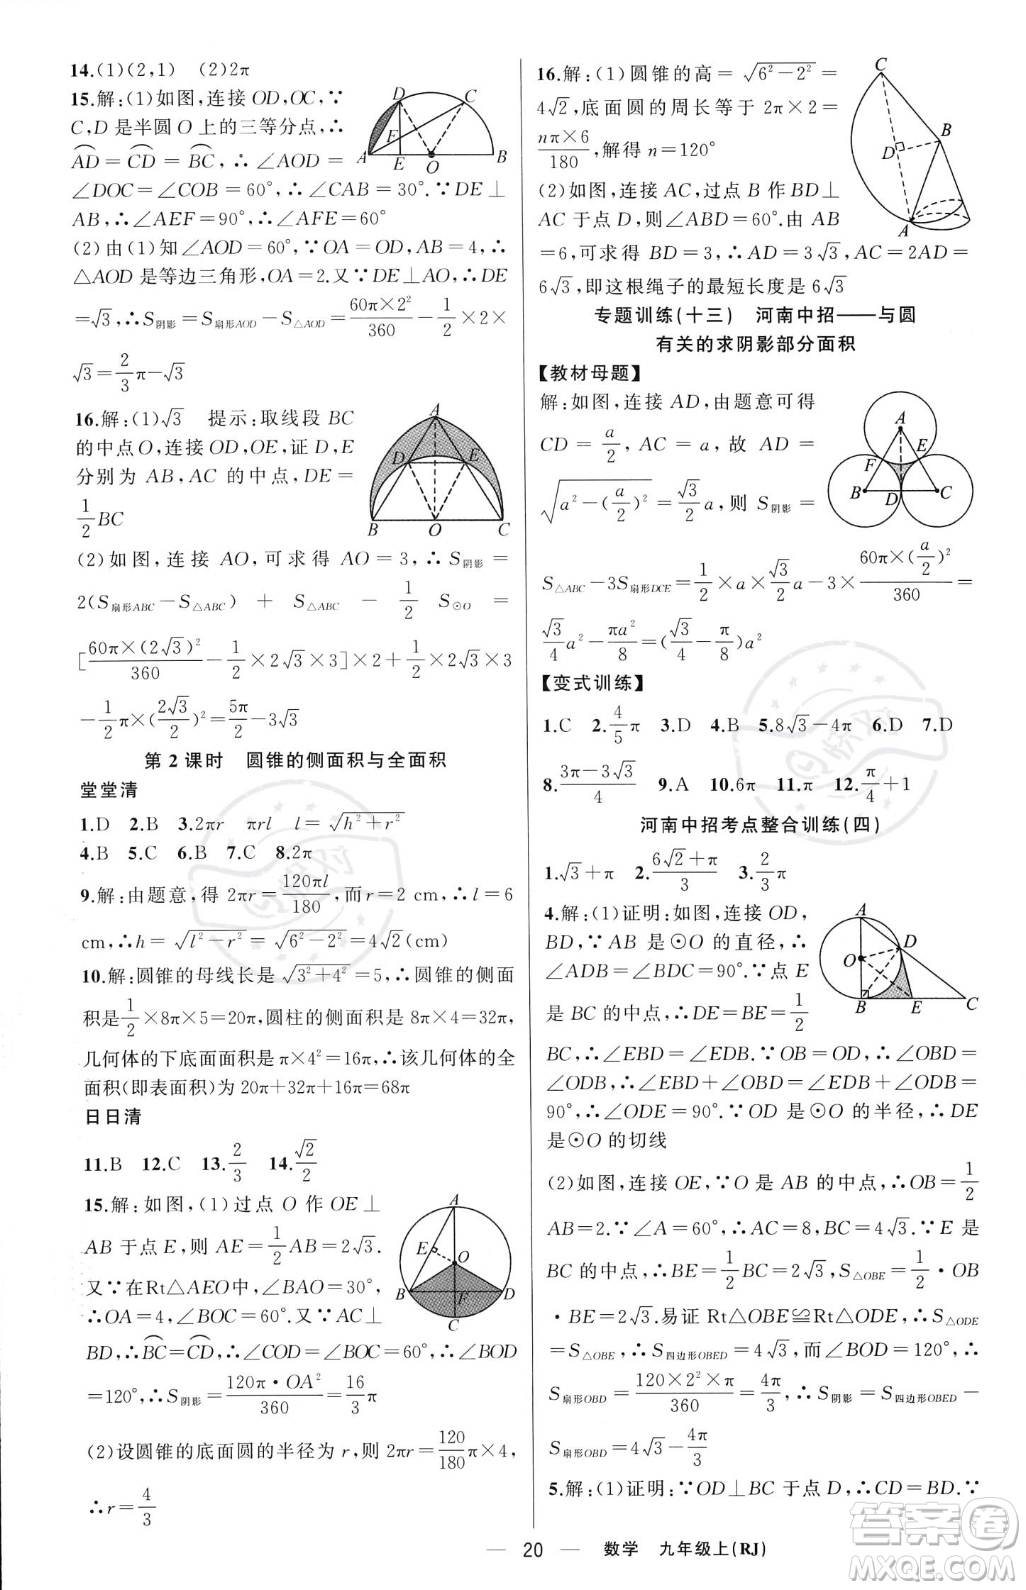 14.(1)(2,1) (2)2π
15.解:(1)如图,连接OD,OC,∵
C,D是半圆O上的三等分点,∴
⌒AD=⌒CD=⌒BC,∴∠AOD=
∠DOC=∠COB=60°,∴∠CAB=30°.∵DE⊥
AB,∴∠AEF=90°,∴∠AFE=60°
(2)由(1)知∠AOD=60°,∵OA=OD,AB=4,∴
△AOD是等边三角形,OA=2.又∵DE⊥AO,∴DE
=√3,∴S阴影=S扇形AOD-S△AOD=60π×2²/360-1/2×2×
√3=2/3π-√3
16.解:(1)√3 提示:取线段BC
的中点O,连接OD,OE,证D,E
分别为AB,AC的中点,DE=
1/2BC
(2)如图,连接AO,可求得AO=3,∴S阴影=
2(S扇形ABC-S△ABC)+S△ABC-1/2S⊙O=
[60π×(2√3)²/360-1/2×2√3×3]×2+1/2×2√3×3
-1/2π×(2√3/2)²=5π/2-3√3
第2课时 圆锥的侧面积与全面积
堂堂清
1.D 2.B 3.2πr πrl l=√(h²+r²)
4.B 5.C 6.B 7.C 8.2π
9.解:由题意,得2πr=120πl/180,而r=2 cm,∴l=6
cm,∴h=√(l²-r²)=√(6²-2²)=4√2(cm)
10.解:圆锥的母线长是√(3²+4²)=5,∴圆锥的侧面
积是1/2×8π×5=20π,圆柱的侧面积是8π×4=32π,
几何体的下底面面积是π×4²=16π,∴该几何体的全
面积(即表面积)为20π+32π+16π=68π
日日清
11.B 12.C 13.2/3 14.√2/2
15.解:如图,(1)过点O作OE⊥
AB于点E,则AE=1/2AB=2√3.
又∵在Rt△AEO中,∠BAO=30°,
∴OA=4,∠BOC=60°.又∵AC⊥
BD,∴⌒BC=⌒CD,∴∠COD=∠BOC=60°,∴∠BOD
=120°,∴S阴影=120π·OA²/360=16/3π
(2)设圆锥的底面圆的半径为r,则2πr=120/180π×4,
∴r=4/3
16.解:(1)圆锥的高=√(6²-2²)=
4√2,底面圆的周长等于2π×2=
nπ×6/180,解得n=120°
(2)如图,连接AC,过点B作BD⊥
AC于点D,则∠ABD=60°.由AB
=6,可求得BD=3,∴AD=3√3,AC=2AD=
6√3,即这根绳子的最短长度是6√3
专题训练(十三) 河南中招——与圆
有关的求阴影部分面积
【教材母题】
解:如图,连接AD,由题意可得
CD=a/2,AC=a,故AD=
√(a²-(a/2)²)=√3/2a,则S阴影=
S△ABC-3S扇形DCE=1/2×a×√3/2a-3×60π×(a/2)²/360=
√3/4a²-πa²/8=(√3/4-π/8)a²
【变式训练】
1.C 2.4/5π 3.D 4.B 5.8√3-4π 6.D 7.D
8.(3π-3√3)/4 9.A 10.6π 11.π 12.π/4+1
河南中招考点整合训练(四)
1.√3+π 2.(6√2+π)/3 3.2/3π
4.解:(1)证明:如图,连接OD,
BD,∵AB是⊙O的直径,∴
∠ADB=∠BDC=90°.∵点E
是BC的中点,∴DE=BE=1/2
BC,∴∠EBD=∠EDB.∵OB=OD,∴∠OBD=
∠ODB,∴∠EBD+∠OBD=∠EDB+∠ODB=
90°,∴∠ODE=90°.∵OD是⊙O的半径,∴DE
是⊙O的切线
(2)如图,连接OE,∵O是AB的中点,∴OB=1/2
AB=2.∵∠A=60°,∴AC=8,BC=4√3.∵E是
BC的中点,∴BE=1/2BC=2√3,S△OBE=1/2·OB
·BE=2√3.易证Rt△OBE≌Rt△ODE,∴S△ODE
=S△OBE,∴S四边形OBED=4√3,而∠BOD=120°,∴
S扇形OBD=120×2²×π/360=4π/3,∴S阴影=S四边形OBED-
S扇形OBD=4√3-4π/3
5.解:(1)证明:∵OD⊥BC于点D,∴CD=BD.∵
20 数学 九年级上(RJ)
答案圈
MXQE.COM